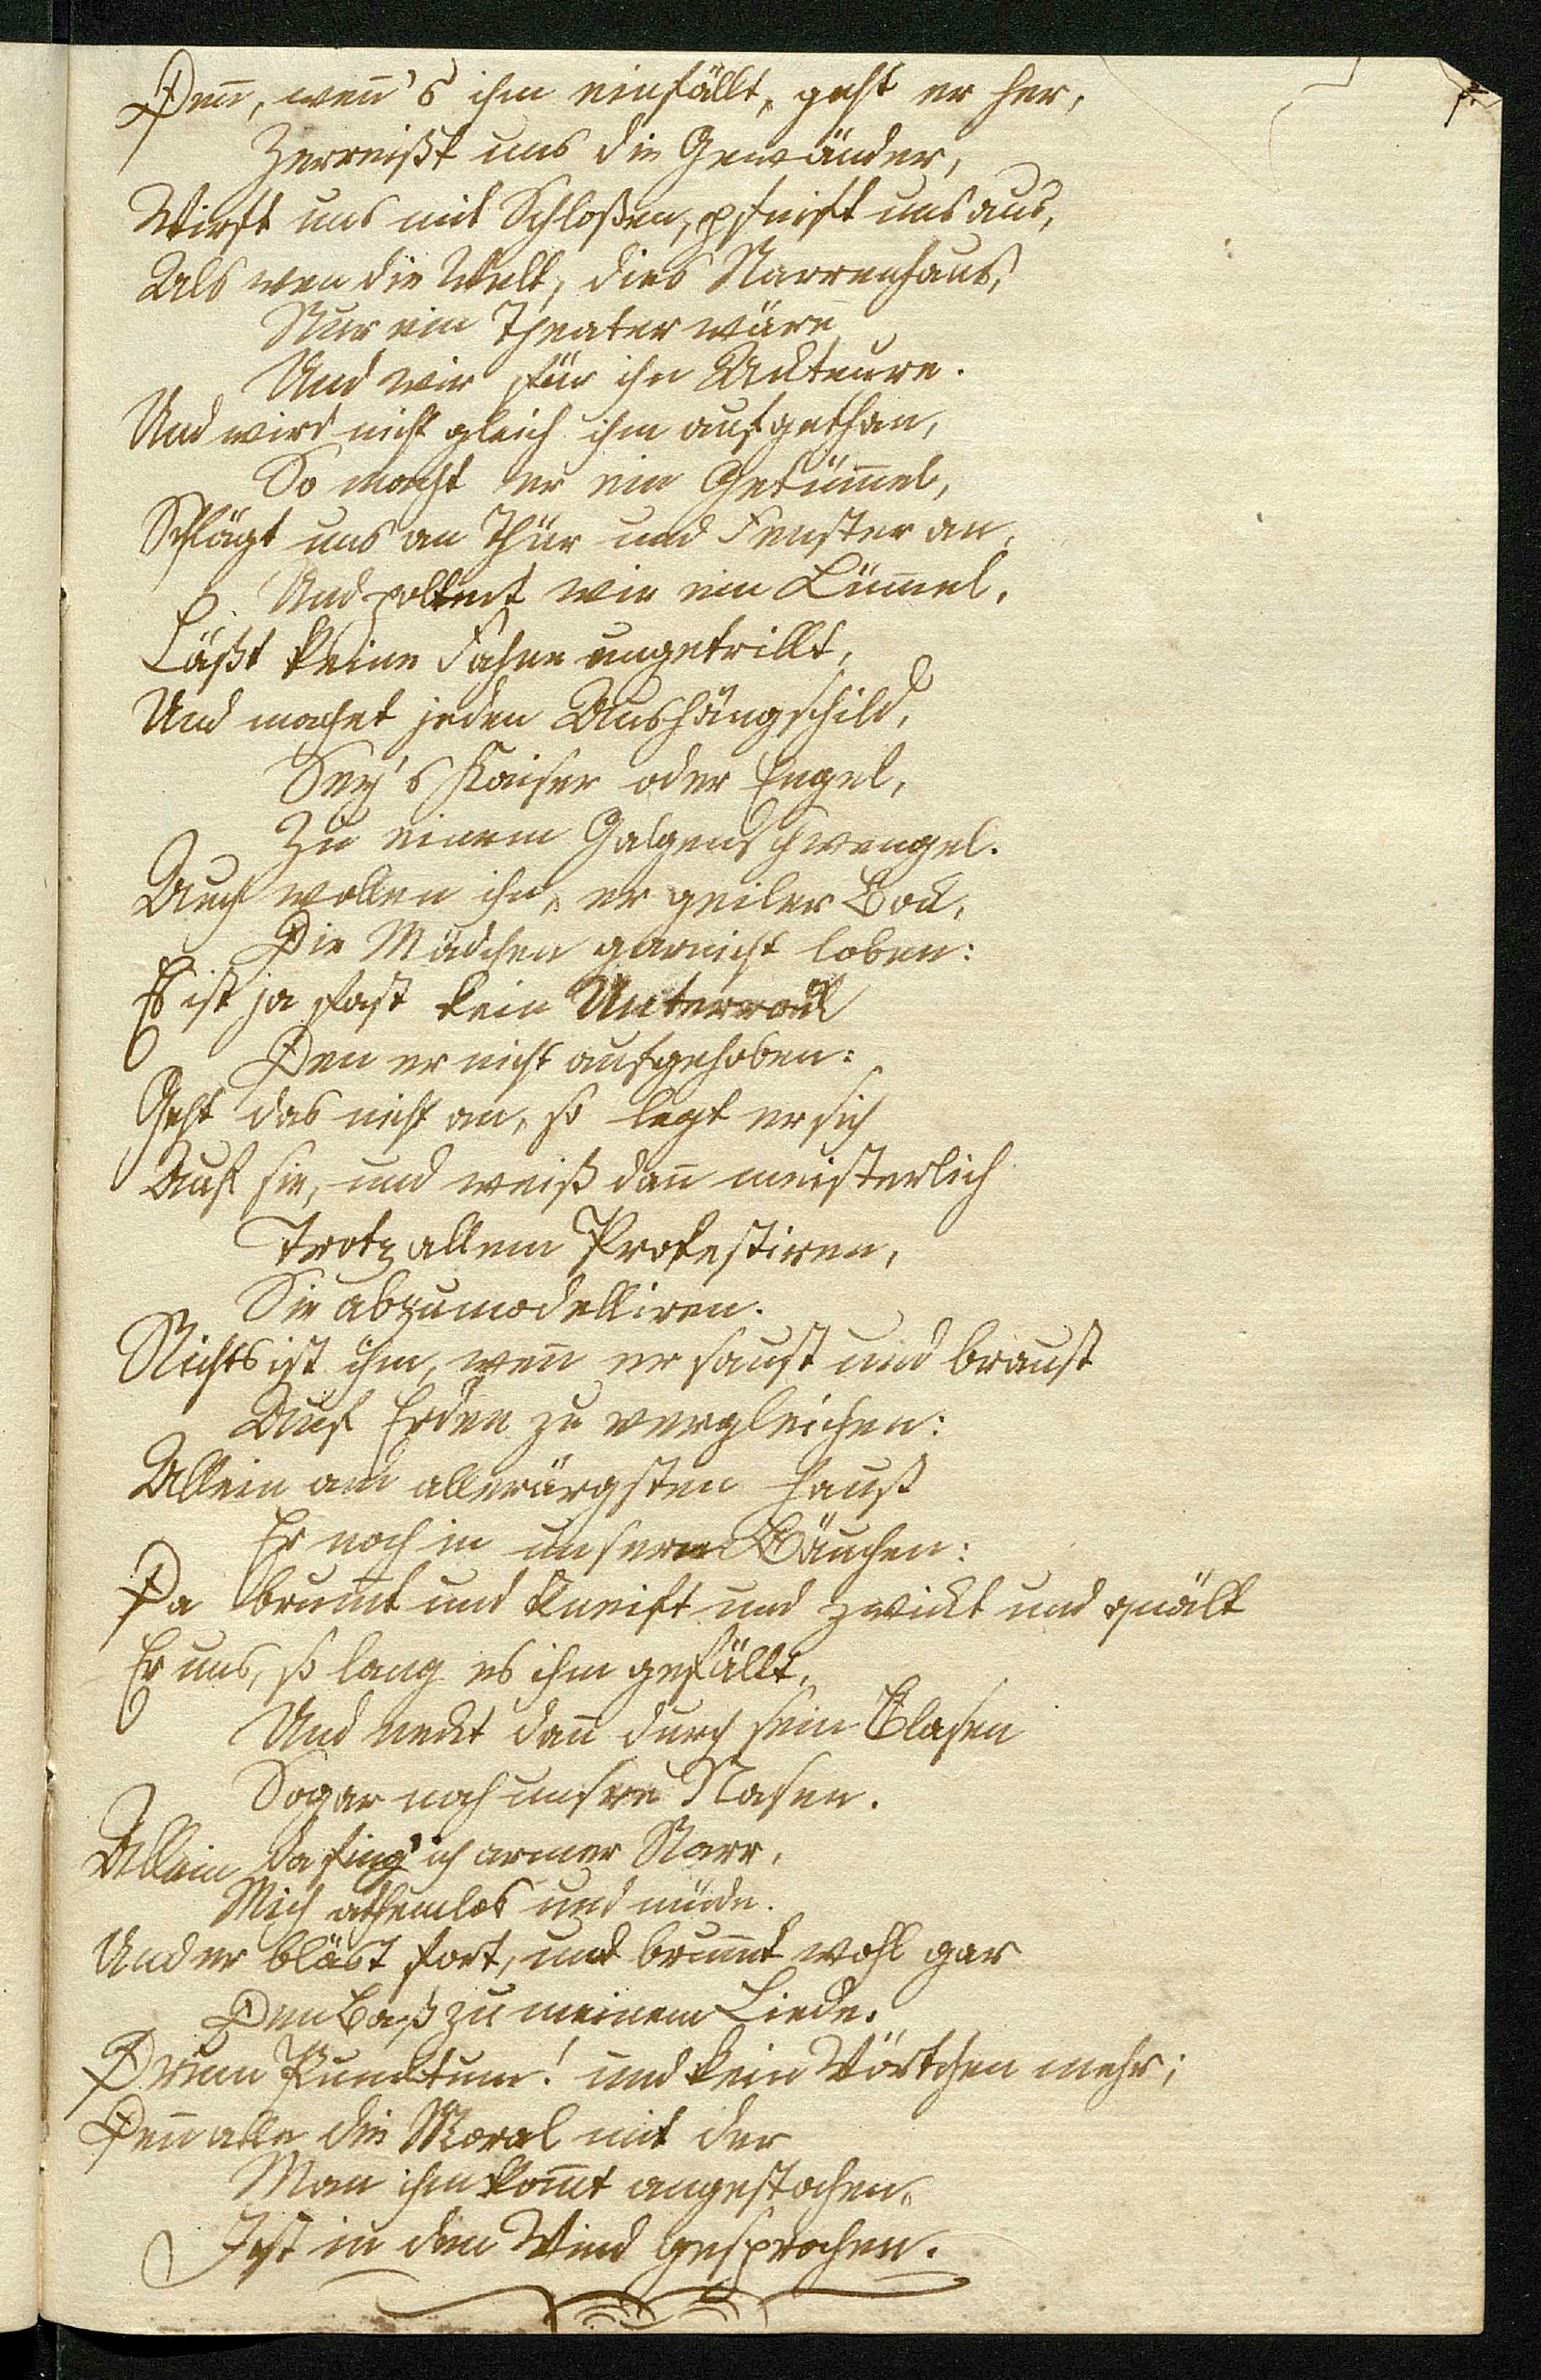 Deñ, weñ's ihm einfällt, geht er her,
Zerreißt uns die Gewänder,
Wirft uns mit Schloßen, pfeift uns aus,
Als wen die Welt, dies Narrenhaus,
Nur ein Theater wäre
Und wir für ihn Akteure.
Und wird nicht gleich ihm aufgethan,
So macht er ein Getüm̃el,
Schlägt uns an Thür und Fenster an,
Und poltert wie ein Lüm̃el,
Läßt keine Fahne ungetrillt,
Und machet jeden Aushängschild,
Sey's Kaiser oder Engel,
Zu einem Galgenschwengel.
Auch wollen ihn, er geiler Bock,
Die Mädchen garnicht loben:
Es ist ja fast kein Unterrock
Den er nicht aufgehoben:
Geht das nicht an, so legt er sich
Auf sie, und weiß dañ meisterlich
Trotz allem Protestiren,
Sie abzumodelliren.
Nichts ist ihm, weñ er saust und braust
Auf Erden zu vergleichen:
Allein am allerärgsten haust
Er noch in unsern Bäuchen:
Da brum̃t und kneift und zwickt und quält
Er uns, so lang es ihm gefällt,
Und neckt dañ durch sein Blasen
Sogar noch unsre Nasen.
Allein da sing' ich armer Narr,
Mich athemlos und müde.
Und er bläst fort, und brum̃t wohl gar
Den Baß zu meinem Liede.
Drum Punktum! und kein Wörtchen mehr;
Deñ alle die Moral mit der
Man ihm kom̃t angestochen,
Ist in den Wind gesprochen.